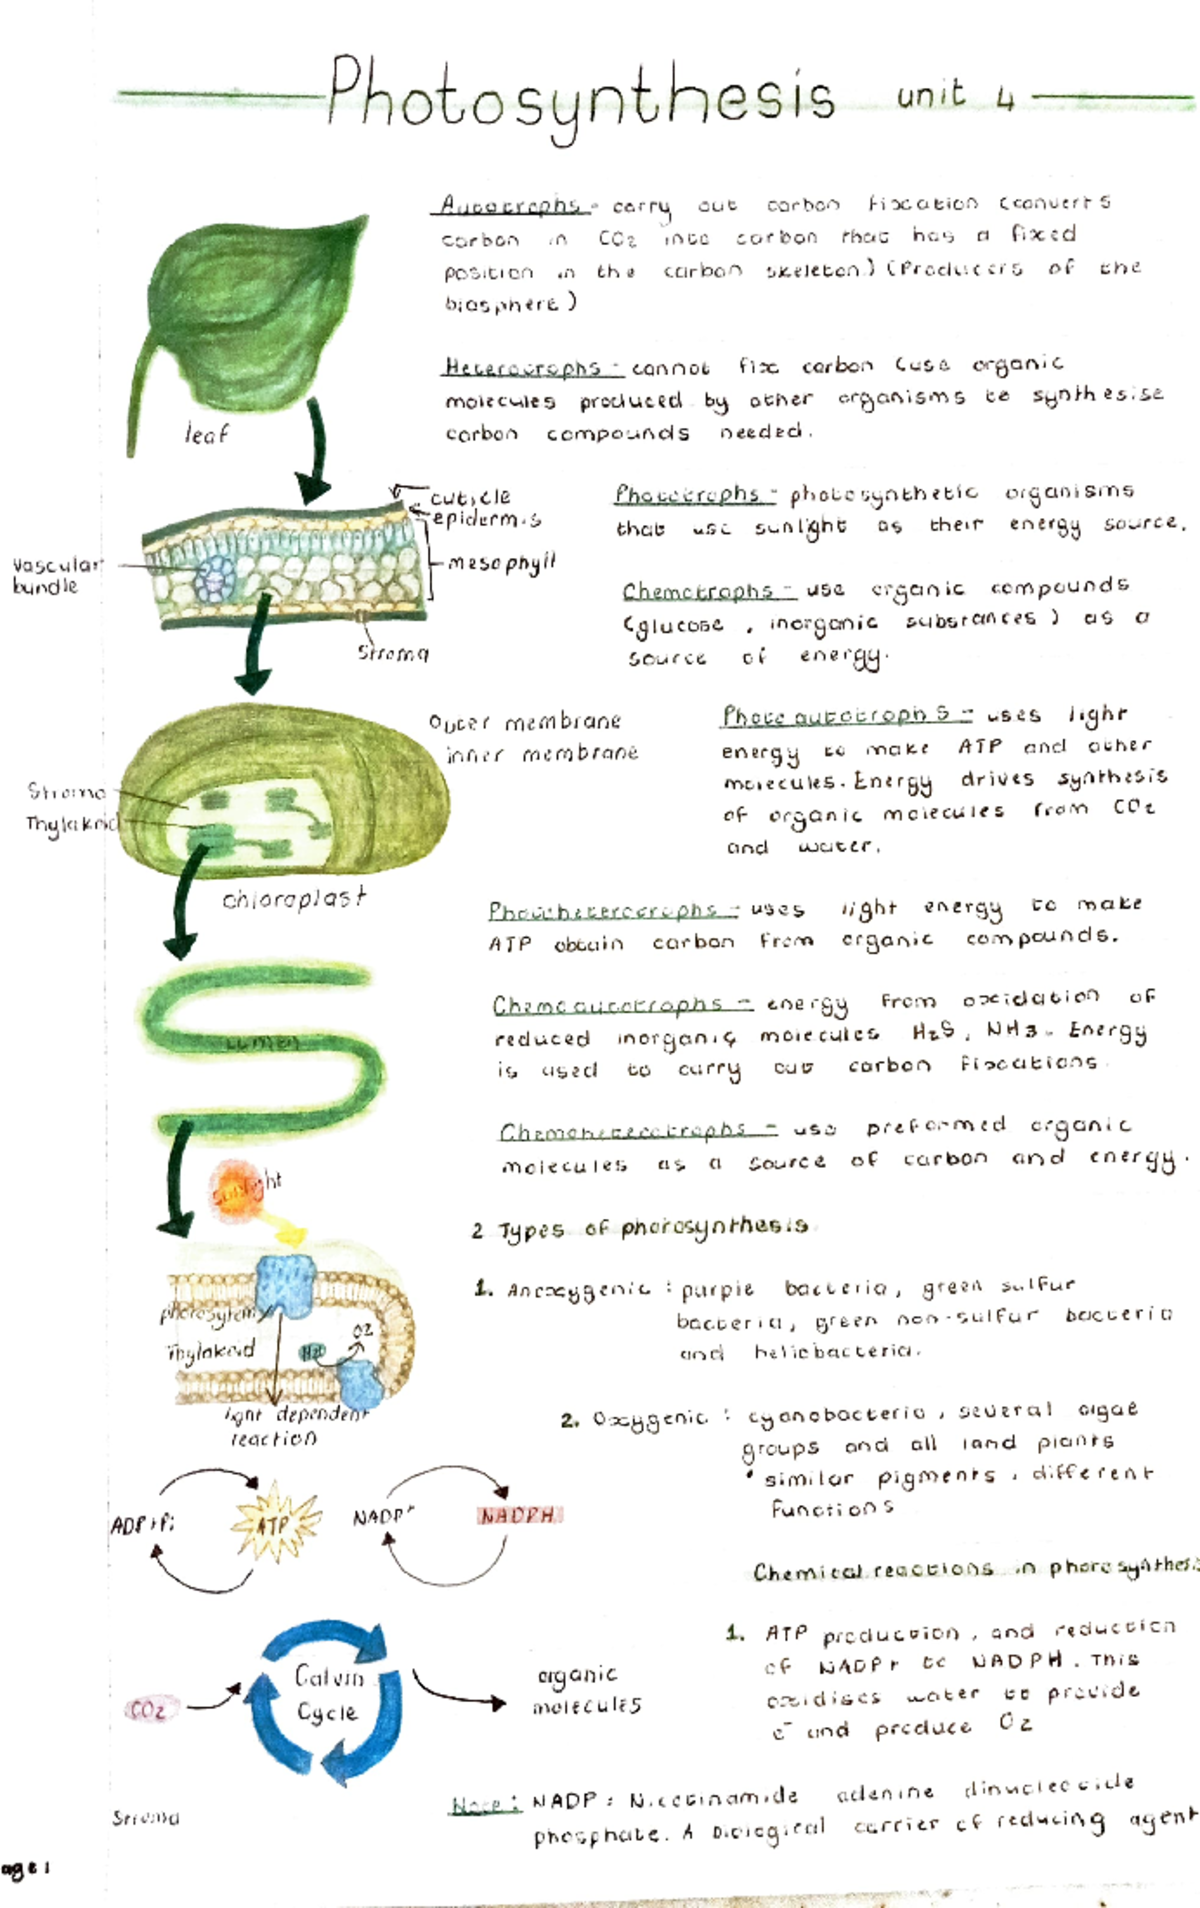 Photosynthesis unit 4
Autotrophs - carry out carbon fixation (converts
carbon in CO2 into carbon that has a fixed
position in the carbon skeleton) (Producers of the
biosphere)
leaf
Heterotrophs - cannot fix carbon (use organic
molecules produced by other organisms to synthesise
carbon compounds needed.
cuticle
epidermis
mesophyll
Vascular
bundle
Stroma
Phototrophs - photosynthetic organisms
that use sunlight as their energy source.
Chemotrophs - use organic compounds
(glucose , inorganic substances) as a
source of energy.
Outer membrane
inner membrane
Stroma
Thylakoid
chloroplast
Photoautotrophs - uses light
energy to make ATP and other
molecules. Energy drives synthesis
of organic molecules from CO2
and water.
Photoheterotrophs - uses light energy to make
ATP obtain carbon from organic compounds.
Lumen
Chemoautotrophs - energy from oxidation of
reduced inorganic molecules H2S, NH3. Energy
is used to carry out carbon fixations.
Chemoheterotrophs - use preformed organic
molecules as a source of carbon and energy.
Sunlight
photosytem
Thylakoid
H2O
O2
light dependent
reaction
2 Types of photosynthesis
1. Anoxygenic : purple bacteria, green sulfur
bacteria, green non-sulfur bacteria
and heliobacteria.
2. Oxygenic : cyanobacteria, several algae
groups and all land plants
• similar pigments, different
functions
ADP+Pi
ATP
NADP+
NADPH
Chemical reactions in photosynthesis
1. ATP production, and reduction
of NADP+ to NADPH. This
oxidises water to provide
e- and produce O2
CO2
Calvin
Cycle
organic
molecules
Stroma
Note: NADP: Nicotinamide adenine dinucleotide
phosphate. A biological carrier of reducing agent
age 1